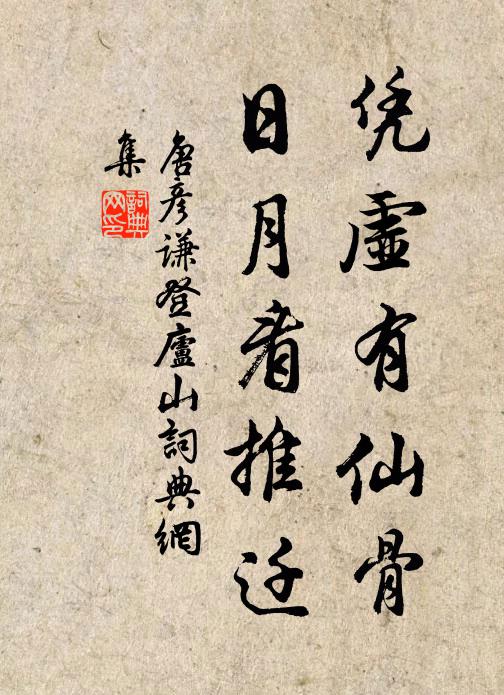 凭虚有仙骨
日月看推迁
唐彦谦登廬山詞典網
集
詞典
网印